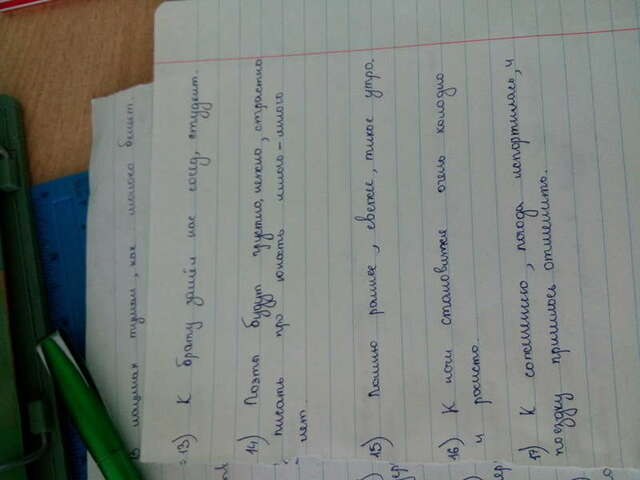 туман, как молоко белый.
13) К брату зашёл нас сосед, студент.
14) Поэты будут грустно, нежно, страстно
писать про юность много-много
лет.
15) Помню раннее, свежее, тихое утро.
16) К ночи становится очень холодно
и росисто.
17) К сожалению, погода испортилась, и
поездку пришлось отменить.